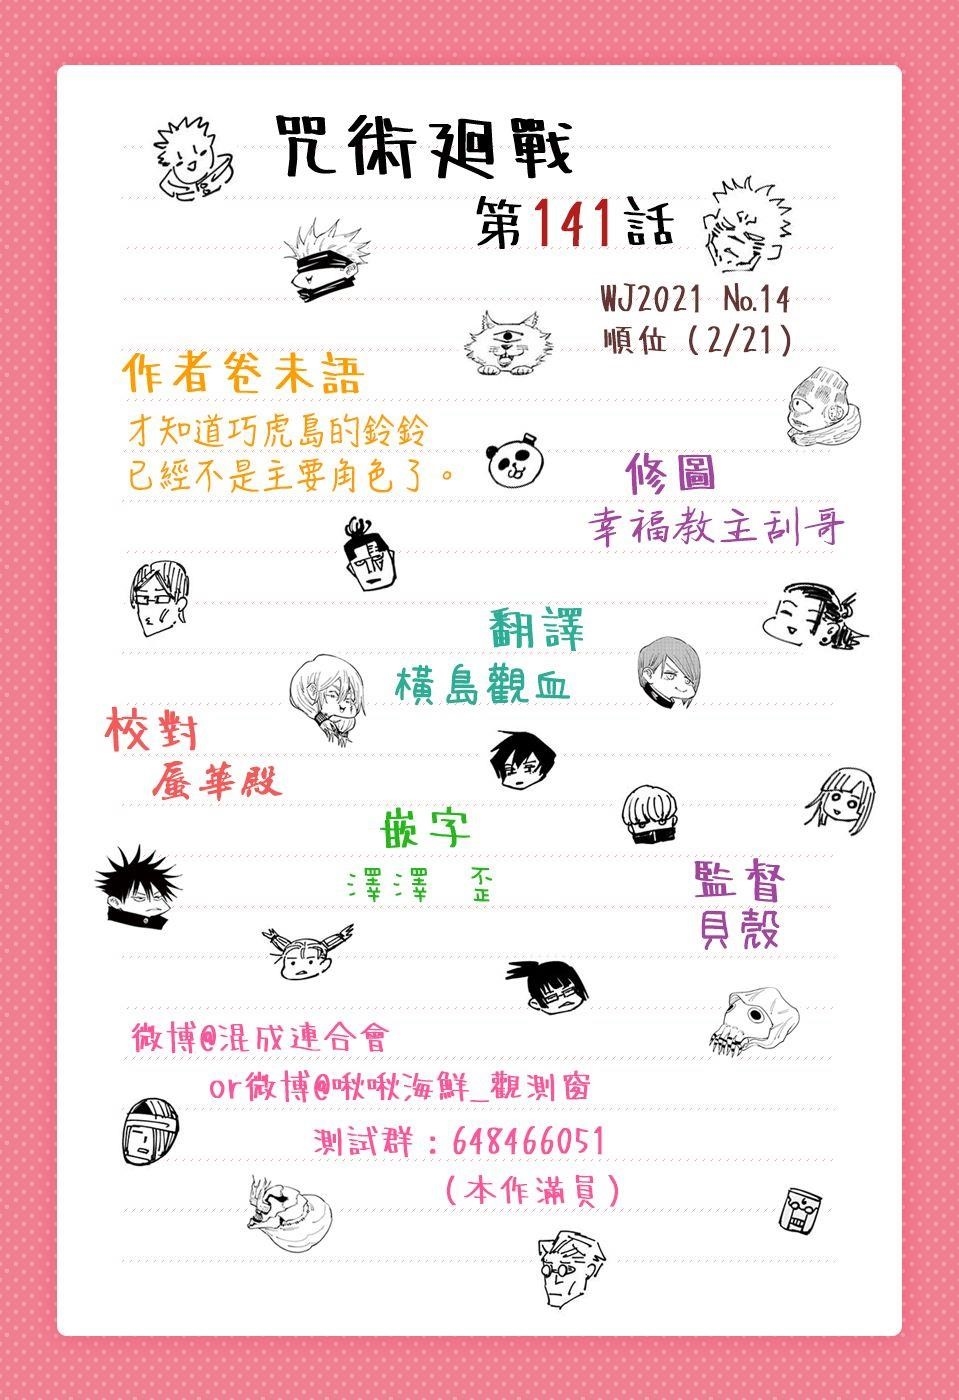 咒術廻戰
第141話
WJ2021 No.14
順位（2/21）
作者卷末語
才知道巧虎島的鈴鈴
已經不是主要角色了。
修圖
幸福教主刮哥
翻譯
橫島觀血
校對
蜃華殿
嵌字
澤澤 歪
監督
貝殼
微博@混成連合會
or微博@啾啾海鮮_觀測窗
測試群：648466051
（本作滿員）